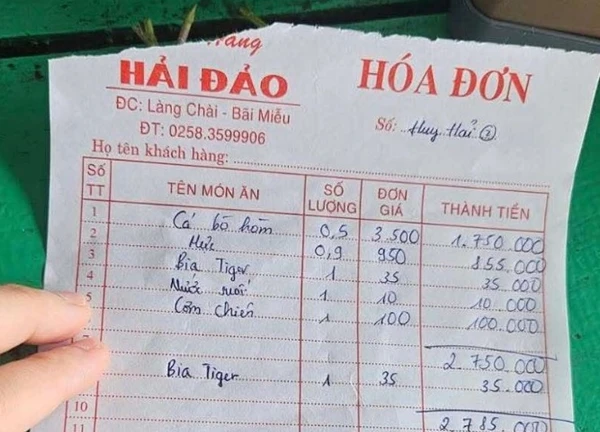 Hàng
HẢI ĐẢO
HÓA ĐƠN
ĐC: Làng Chài - Bãi Miễu
ĐT: 0258.3599906
Số: Huy Hải 2
Họ tên khách hàng:
Số TT TÊN MÓN ĂN SỐ LƯỢNG ĐƠN GIÁ THÀNH TIỀN
1 Cá bò hòm 0,5 3.500 1.750.000
2 Mực 0,9 950 855.000
3 Bia Tiger 1 35 35.000
4 Nước suối 1 10 10.000
5 Cơm chiên 1 100 100.000
2.750.000
Bia Tiger 1 35 35.000
10
11 2.785.000